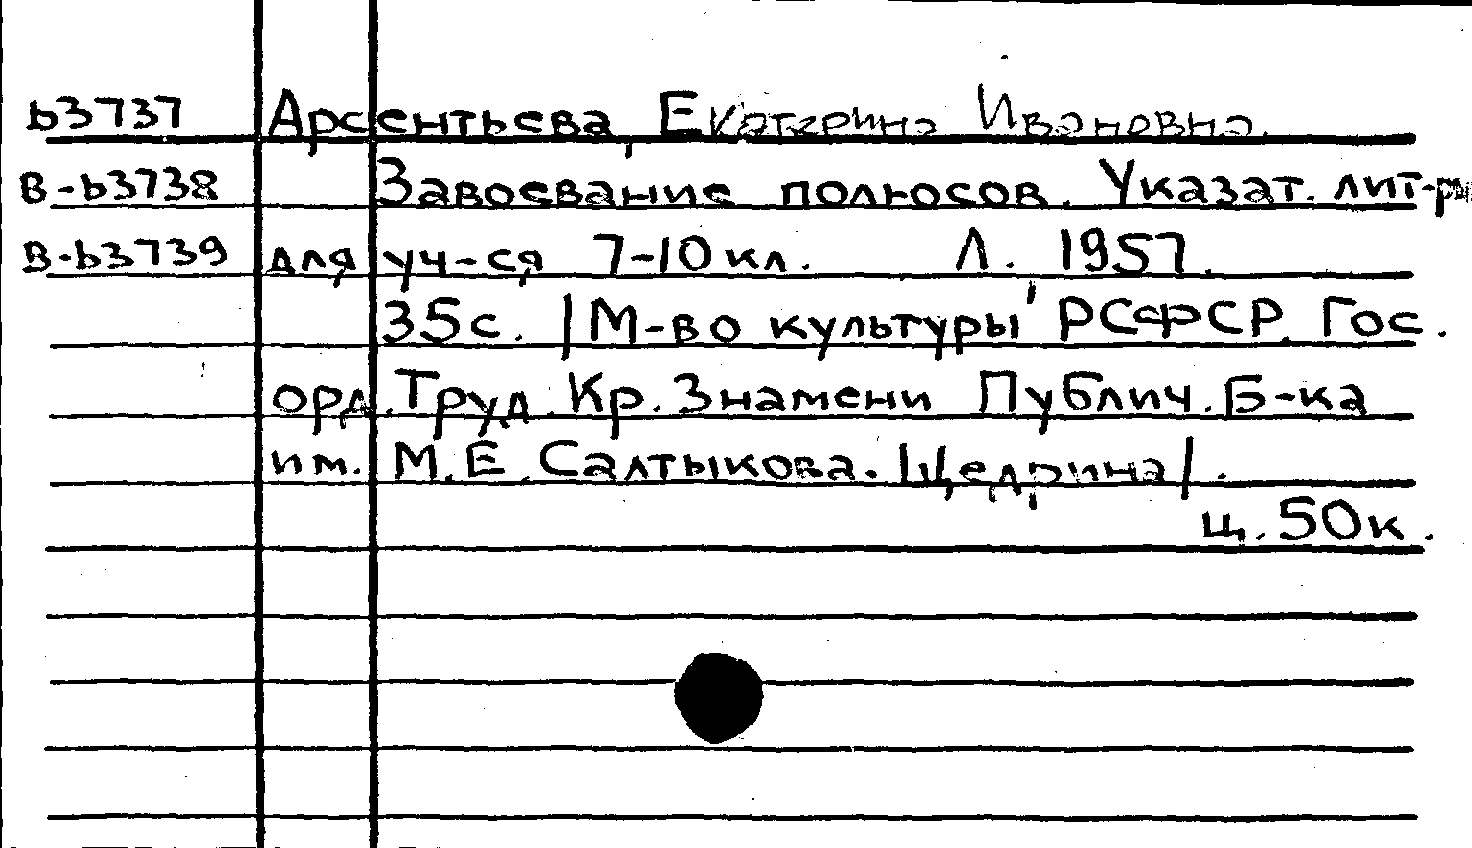 ь3737 Арсентьева, Екатерина Ивановна.
В-ь3738 Завоевание полюсов. Указат. лит-ры
В-ь3739 для уч-ся 7-10 кл. Л. 1957.
35с. |М-во культуры РСФСР. Гос.
орд. Труд. Кр. Знамени Публич. Б-ка
им. М.Е. Салтыкова-Щедрина|.
ц. 50к.